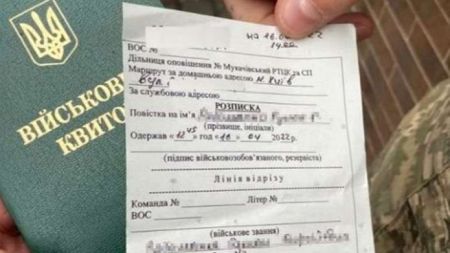 ВІЙСЬКОВ
КВИТО
на 16.0 22
14.00
ВОС №
Дільниця оповіщення № Мукачівський РТЦК та СП
Маршрут за домашньою адресою м. Київ
Вул.
За службовою адресою
РОЗПИСКА
Повістка на ім'я
(прізвище, ініціали)
Одержав «12 45 год «16 04 2022 р.
(підпис військовозобов'язаного, резервіста)
Лінія відрізу
Команда № Літер №
ВОС
(військове звання)